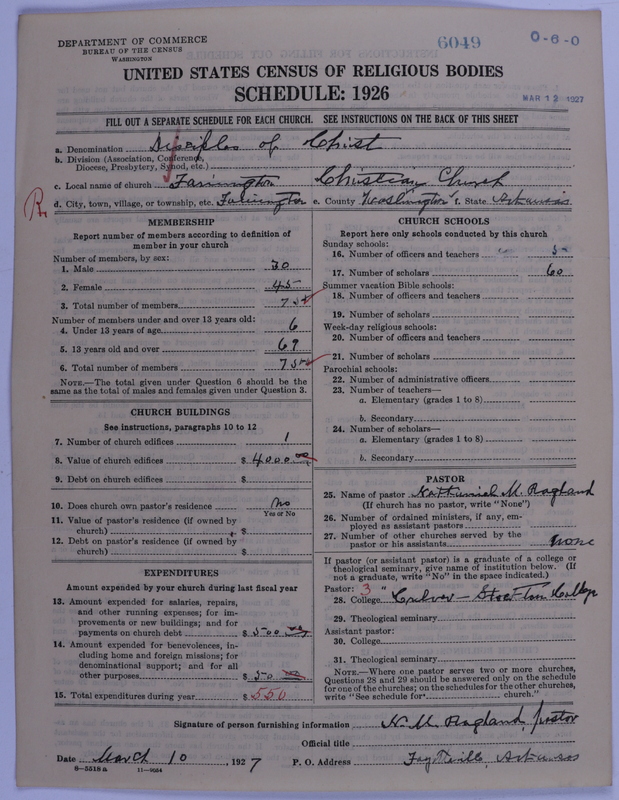 DEPARTMENT OF COMMERCE
BUREAU OF THE CENSUS
WASHINGTON
6049
0-6-0
MAR 12 1927
UNITED STATES CENSUS OF RELIGIOUS BODIES
SCHEDULE: 1926
FILL OUT A SEPARATE SCHEDULE FOR EACH CHURCH. SEE INSTRUCTIONS ON THE BACK OF THIS SHEET
a. Denomination Disciples of Christ
b. Division (Association, Conference,
Diocese, Presbytery, Synod, etc.)
c. Local name of church Farmington Christian Church
d. City, town, village, or township, etc. Farmington e. County Washington f. State Arkansas
MEMBERSHIP
Report number of members according to definition of
member in your church
Number of members, by sex:
1. Male 30
2. Female 45
3. Total number of members 75
Number of members under and over 13 years old:
4. Under 13 years of age 6
5. 13 years old and over 69
6. Total number of members 75
NOTE.—The total given under Question 6 should be the
same as the total of males and females given under Question 3.
CHURCH BUILDINGS
See instructions, paragraphs 10 to 12
7. Number of church edifices 1
8. Value of church edifices $ 4000.00
9. Debt on church edifices $
10. Does church own pastor's residence No
Yes or No
11. Value of pastor's residence (if owned by
church) $
12. Debt on pastor's residence (if owned by
church) $
EXPENDITURES
Amount expended by your church during last fiscal year
13. Amount expended for salaries, repairs,
and other running expenses; for im-
provements or new buildings; and for
payments on church debt $ 500 00
14. Amount expended for benevolences, in-
cluding home and foreign missions; for
denominational support; and for all
other purposes $ 50 00
15. Total expenditures during year $ 550
CHURCH SCHOOLS
Report here only schools conducted by this church
Sunday schools:
16. Number of officers and teachers 5
17. Number of scholars 60
Summer vacation Bible schools:
18. Number of officers and teachers
19. Number of scholars
Week-day religious schools:
20. Number of officers and teachers
21. Number of scholars
Parochial schools:
22. Number of administrative officers
23. Number of teachers—
a. Elementary (grades 1 to 8)
b. Secondary
24. Number of scholars—
a. Elementary (grades 1 to 8)
b. Secondary
PASTOR
25. Name of pastor Nathaniel M. Ragland
(If church has no pastor, write "None")
26. Number of ordained ministers, if any, em-
ployed as assistant pastors
27. Number of other churches served by the
pastor or his assistants none
If pastor (or assistant pastor) is a graduate of a college or
theological seminary, give name of institution below. (If
not a graduate, write "No" in the space indicated.)
Pastor: 3
28. College Culver-Stockton College
29. Theological seminary
Assistant pastor:
30. College
31. Theological seminary
NOTE.—Where one pastor serves two or more churches,
Questions 28 and 29 should be answered only on the schedule
for one of the churches; on the schedules for the other churches,
write "See schedule for church."
Signature of person furnishing information N. M. Ragland, pastor
Official title
Date March 10, 1927 P. O. Address Fayetteville, Arkansas
8-5518a 11-9054